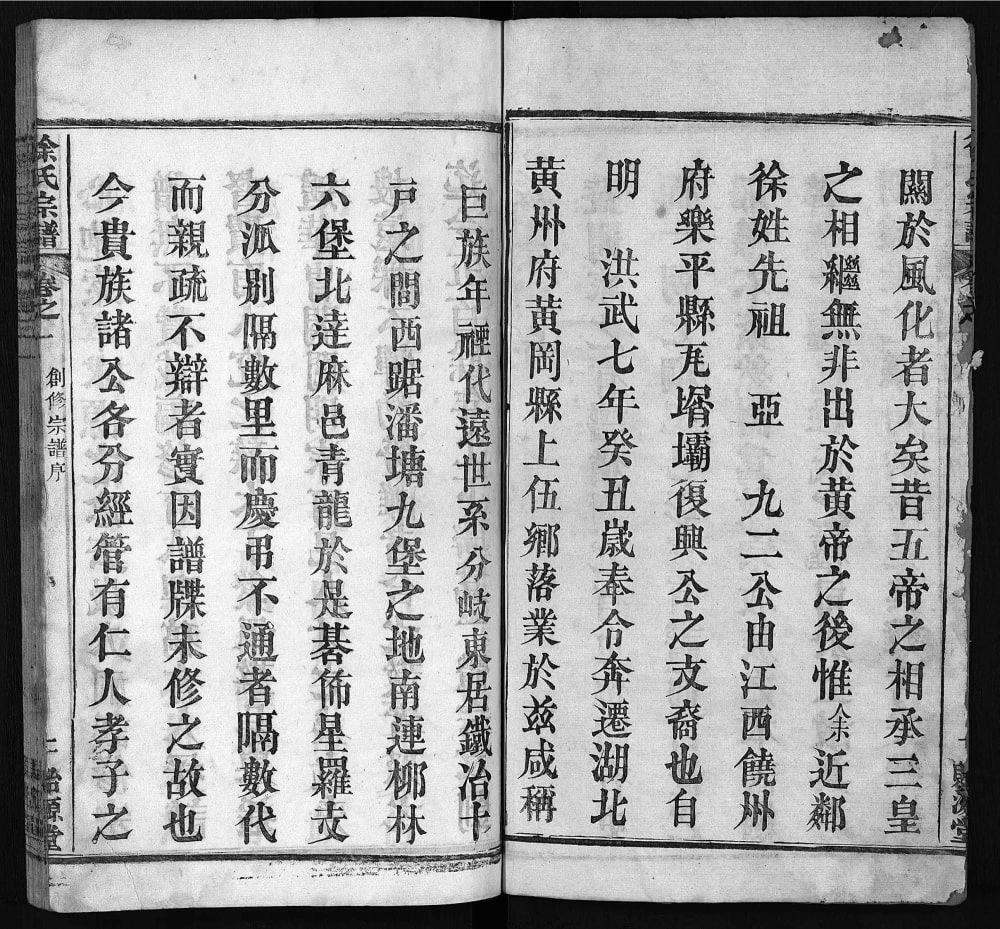 關於風化者大矣昔五帝之相承三皇
之相繼無非出於黄帝之後惟余近鄰
徐姓先祖 亞 九二公由江西饒州
府樂平縣瓦壻壩復興公之支裔也自
明 洪武七年癸丑歲奉令奔遷湖北
黄州府黄岡縣上伍鄉落業於兹咸稱
巨族年禋代遠世系分岐東居鐵冶十
戸之間西踞潘塘九堡之地南連柳林
六堡北逹麻邑青龍於是碁佈星羅支
分派别隔數里而慶弔不通者隔數代
而親疏不辯者實因譜牒未修之故也
今貴族諸公各分經管有仁人孝子之
徐氏宗譜
卷之一
創修宗譜序
二